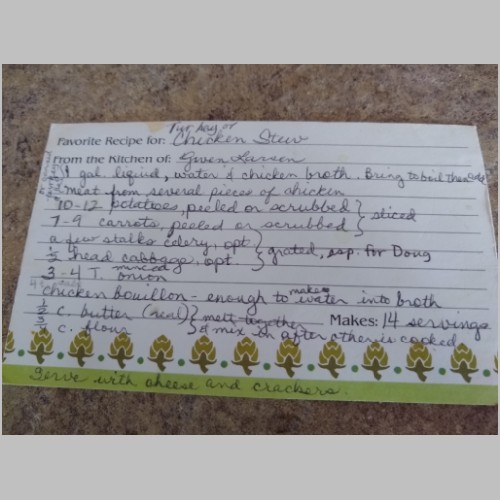 Turkey or
Favorite Recipe for: Chicken Stew
From the Kitchen of: Gwen Larsen
1 gal. liquid, water & chicken broth. Bring to boil then add
meat from several pieces of chicken
10-12 potatoes, peeled or scrubbed } sliced
7-9 carrots, peeled or scrubbed
a few stalks celery, opt. } grated, esp. for Doug
1/2 head cabbage, opt.
3-4 T. minced onion
chicken bouillon - enough to make water into broth
1/2 c. butter (real) } melt together Makes: 14 servings
c. flour & mix in after other is cooked
Serve with cheese and crackers.